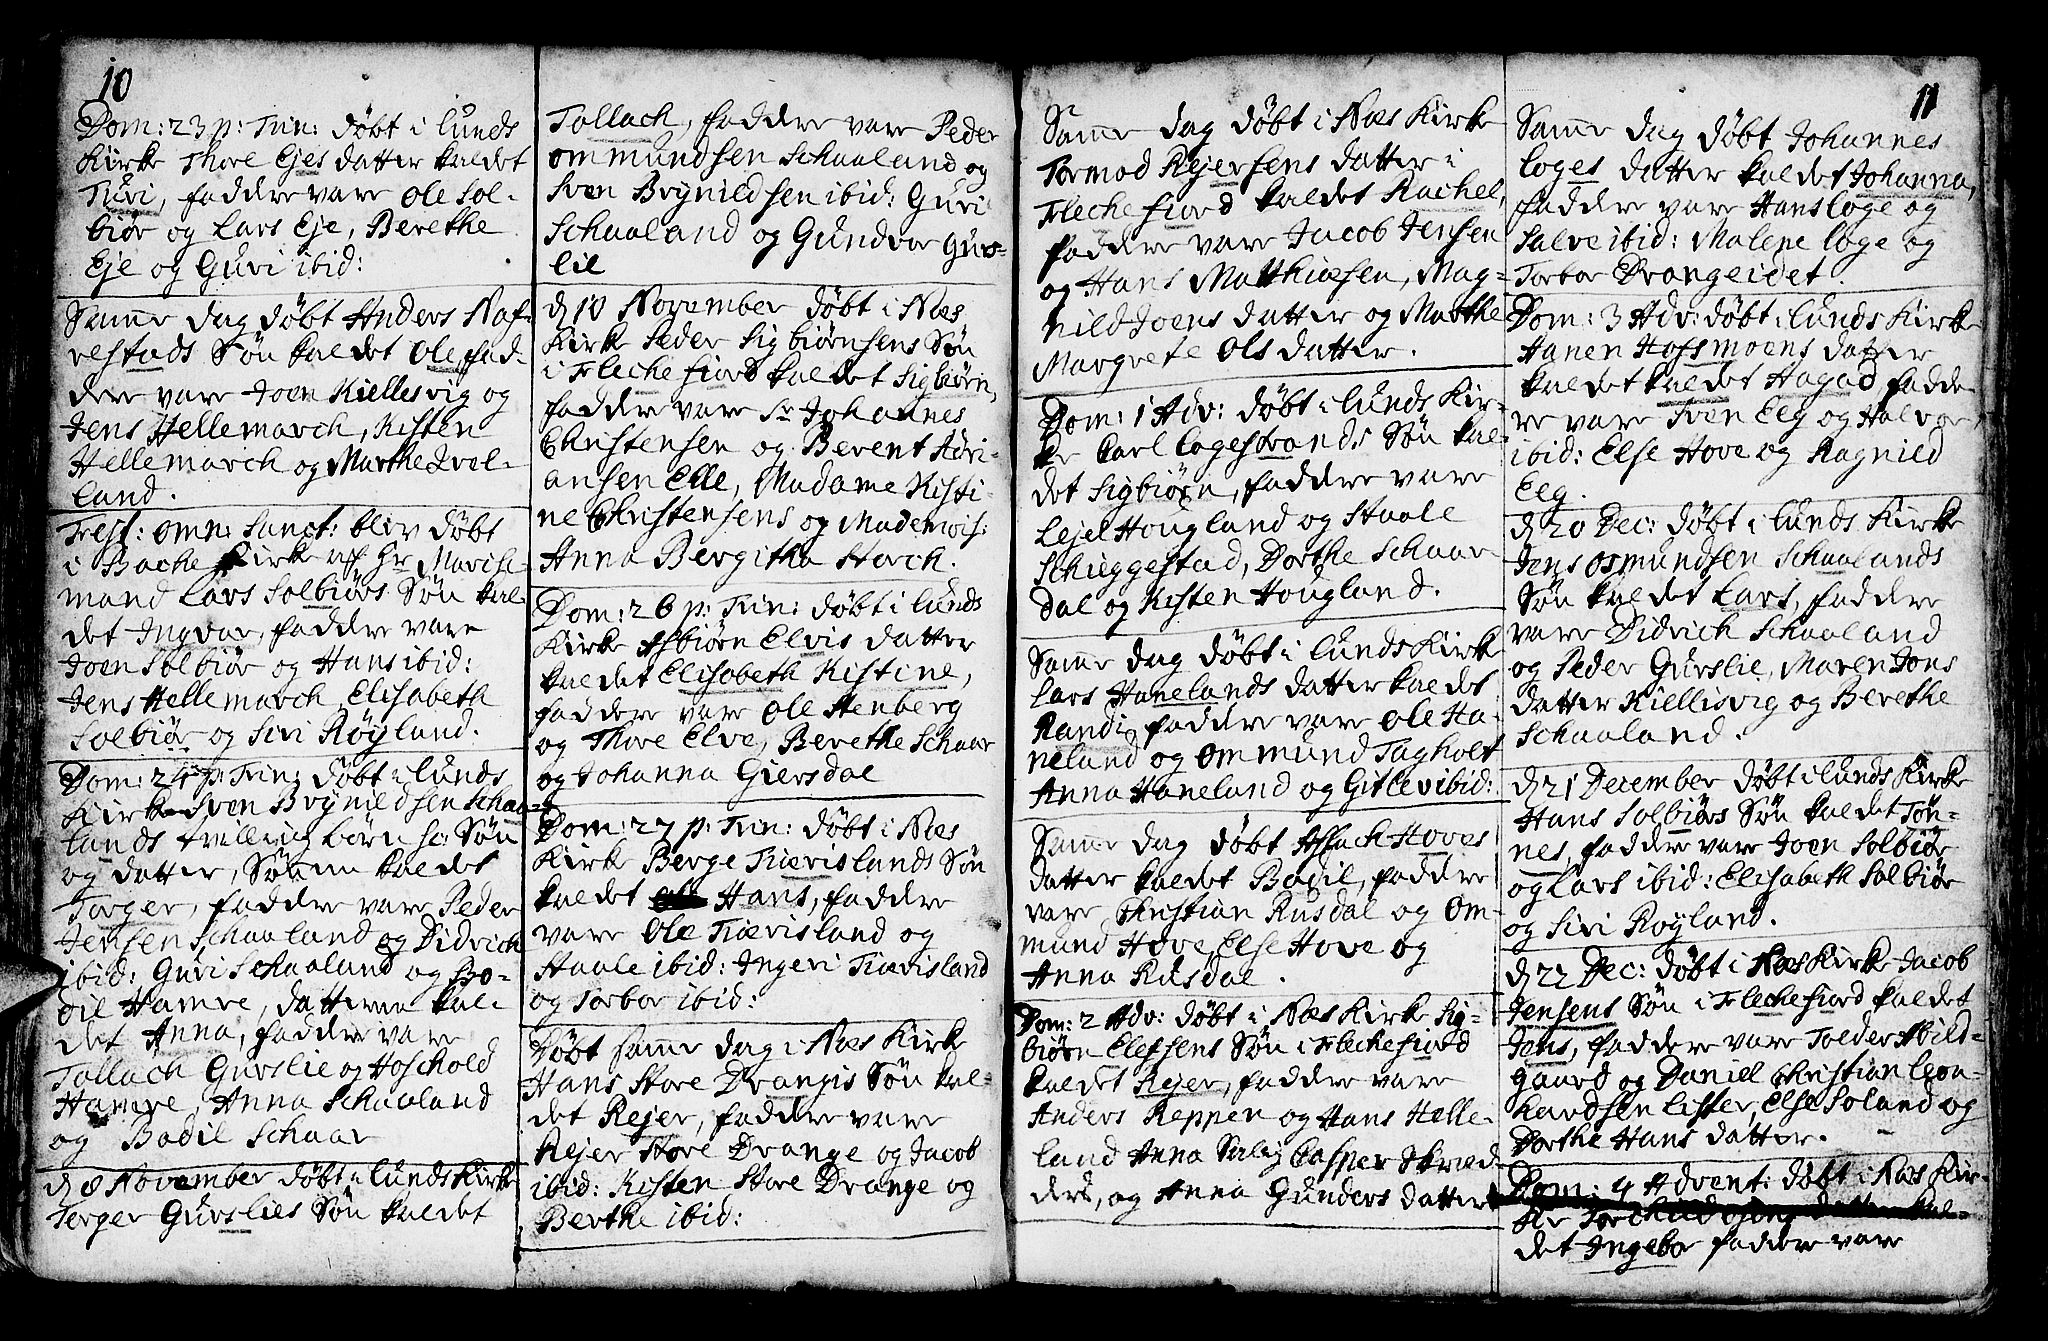 10
Dom: 23 p: Trin: døbt i Lunds
Kirke Thore Ejes datter kaldet
Turi, faddre vare Ole Sol-
biør og Lars Eje, Berethe
Eje og Guri ibid:
Samme dag døbt Anders Raf-
restads Søn kaldet Ole fad-
dre vare Joen Kiellesvig og
Jens Hellemarch, Kisten
Hellemarch og Marthe Qvel-
land.
Fest: omn: Sanct: blev døbt
i Bache Kirke af Hr
mand Lars Solbiørs Søn kal-
det Ingvar, faddre vare
Joen Solbiør og Hans ibid:
Jens Hellemarch, Elisabeth
Solbiør og Siri Røyland.
Dom: 24 p: Trin: døbt i Lunds
Kirke Sven Brynildsen Schaa-
lands tvilling børn sc: Søn
og datter, Sønnen kaldet
Torger, faddre vare Peder
Jensen Schaaland og Didrich
ibid: Guri Schaaland og Bo-
dil Hamre, datteren kal-
det Anna, faddre vare
Tollach Gurslie og Hoschold
Hamre, Anna Schaaland
og Bodil Schaar
d 8 November døbt i Lunds Kirke
Terger Gurslies Søn kaldet
Tollach, faddre vare Peder
Ommundsen Schaaland og
Sven Brynildsen ibid: Guri
Schaaland og Gundvor Gurs-
lie
d 10 November døbt i Næs
Kirke Peder Sigbiørnsens Søn
i Flechefiord kaldet Sigbiørn,
faddre vare Sr Johannes
Christensen og Berent Adri-
ansen Elle, Madame Kisti-
ne Christensens og Mademois:
Anna Bergitha Storch.
Dom: 26 p: Trin: døbt i Lunds
Kirke Asbiørn Elvis datter
kaldet Elisabeth Kistine,
faddre vare Ole Stenberg
og Thore Elve, Berethe Schaar
og Johanna Giersdal
Dom: 27 p: Trin: døbt i Næs
Kirke Berge Tiærislands Søn
kaldet Hans, faddre
vare Ole Tiærisland og
Staale ibid: Ingeri Tiærisland
og Torbor ibid:
Døbt samme dag i Næs Kirke
Hans Store Drangis Søn kal-
det Rejer, faddre vare
Rejer Store Drange og Jacob
ibid: Kisten Store Drange og
Berthe ibid:
11
Samme dag døbt i Næs Kirke
Tormod Rejersens datter i
Flechefiord kaldet Rachel,
faddre vare Jacob Jensen
og Hans Matthiæsen, Mag-
nild Joens datter og Marthe
Margrete Ols datter.
Dom: 1 Adv: døbt i Lunds Kir-
ke Carl Logestrands Søn kal-
det Sigbiørn, faddre vare
Lejel Hougland og Staale
Schieggestad, Dorthe Schaar-
dal og Kisten Hougland.
Samme dag døbt i Lunds Kirke
Lars Hanelands datter kaldet
Randi, faddre vare Ole Ha-
neland og Ommund Tagholt
Anna Haneland og Gitlev ibid:
Samme dag døbt Aslach Hoves
datter kaldet Bodil, faddre
vare Christian Rusdal og Om-
mund Hove, Else Hove og
Anna Rusdal.
Dom: 2 Adv: døbt i Næs Kirke Sig-
biørn Elefsens Søn i Flechefiord
kaldet Rejer, faddre vare
Anders Reppen og Hans Helle-
land Anna Salig Casper Skræd-
ders, og Anna Gunders datter
Samme dag døbt Johannes
Loges datter kaldet Johanna,
faddre vare Hans Loge og
Salve ibid: Malene Loge og
Torbor Drangeidet.
Dom: 3 Adv: døbt i Lunds Kirke
Hanen Hofsmoens datter
kaldet kaldet Aagad fadde-
re vare Sven Eeg og Halvor
ibid: Else Hove og Ragnild
Eeg.
d 20 Dec: døbt i Lunds Kirke
Jens Osmundsen Schaalands
Søn kaldet Lars, faddre
vare Didrich Schaaland
og Peder Gurslie, Maren Jons
datter Kiellisvig og Berethe
Schaaland.
d 21 December døbt i Lunds Kirke
Hans Solbiørs Søn kaldet Tøn-
nes, faddre vare Joen Solbiør
og Lars ibid: Elisabeth Solbiør
og Siri Røyland.
d 22 Dec: døbt i Næs Kirke Jacob
Jensens Søn i Flechefiord kaldet
Jens, faddre vare Peder Abild-
gaard og Daniel Christian Leon-
hardsen Lister, Else Soland og
Dorthe Hans datter.
Dom: 4 Advent: døbt i Næs Kir-
ke datter kal-
det Ingebor faddre vare